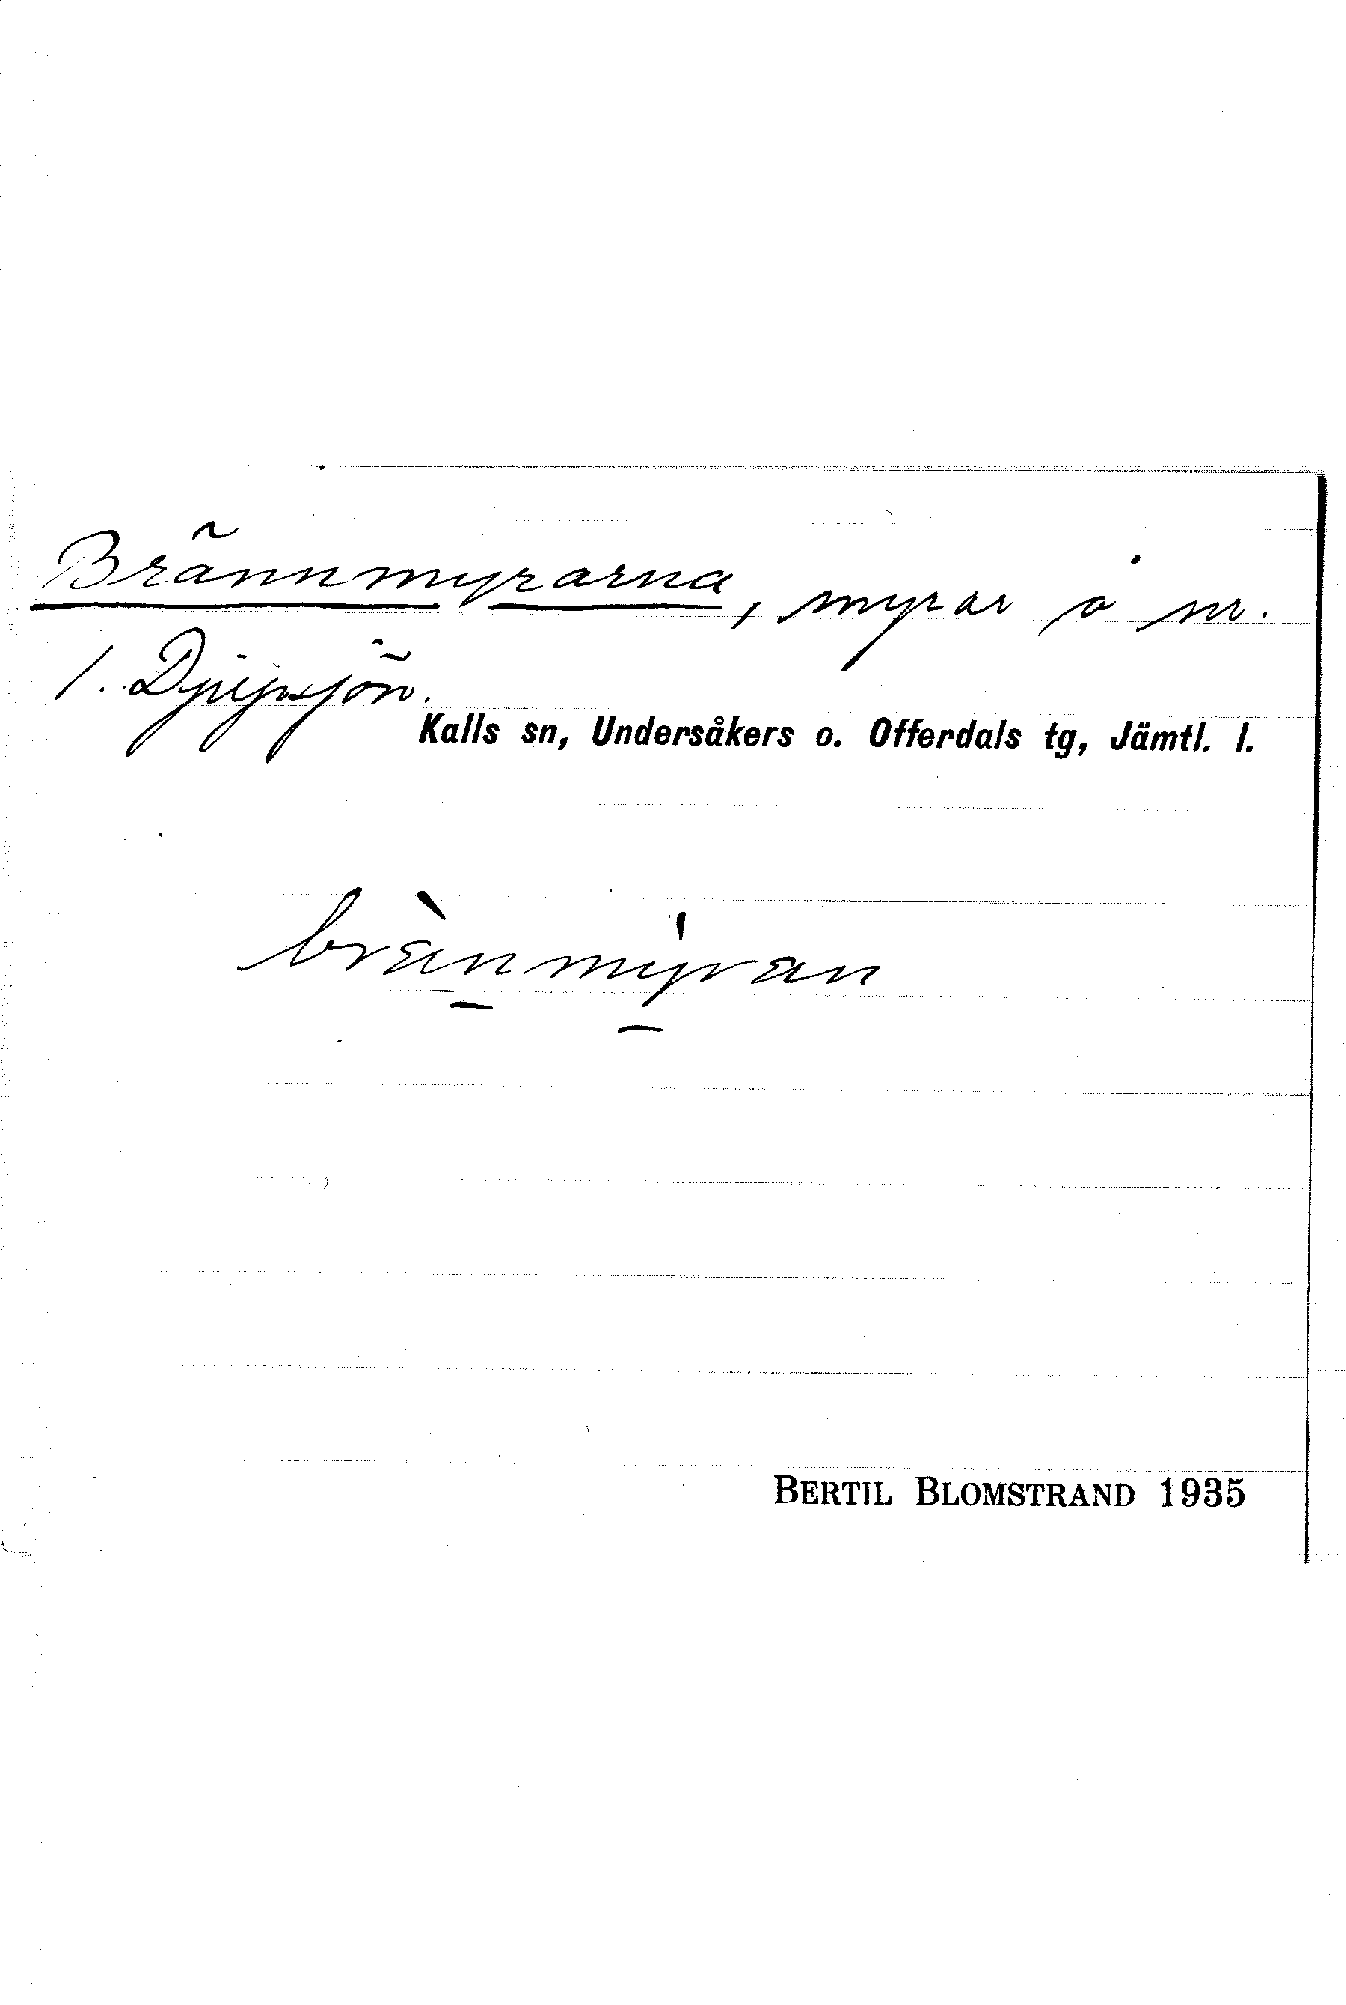 Brännmyrarna, myrar å nr.
1. Djupsjön.
Kalls sn, Undersåkers o. Offerdals tg, Jämtl. l.
brànmýran
BERTIL BLOMSTRAND 1935